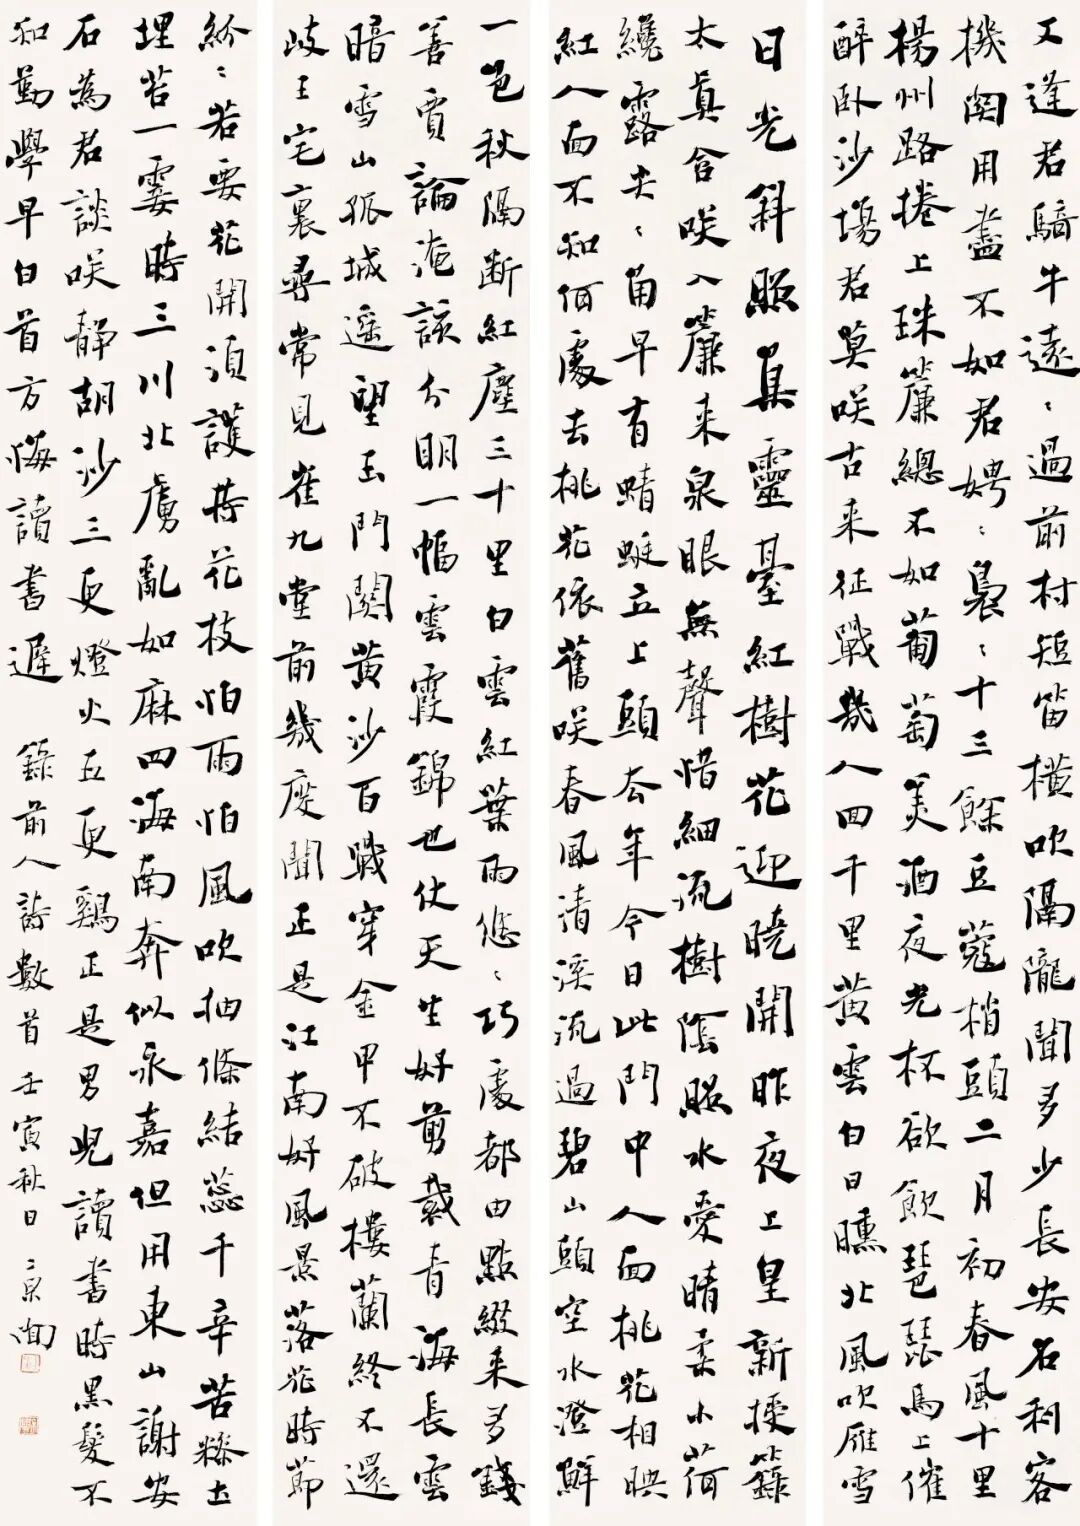 又逢君騎牛遠〻過前村短笛橫吹隔隴聞多少長安名利客
機關用盡不如君娉〻裊〻十三餘豆蔻梢頭二月初春風十里
揚州路捲上珠簾總不如葡萄美酒夜光杯欲飲琵琶馬上催
醉臥沙場君莫咲古來征戰幾人回千里黃雲白日曛北風吹雁雪
日光斜照集靈臺紅樹花迎曉開昨夜上皇新授籙
太真含咲入簾來泉眼無聲惜細流樹陰照水愛晴柔小荷
纔露尖〻角早有蜻蜓立上頭去年今日此門中人面桃花相映
紅人面不知何處去桃花依舊咲春風清溪流過碧山頭空水澄鮮
一色秋隔斷紅塵三十里白雲紅葉兩悠〻巧處都由點綴來多錢
善賈論淹該分明一幅雲霞錦也仗天生好剪裁青海長雲
暗雪山孤城遙望玉門關黃沙百戰穿金甲不破樓蘭終不還
岐王宅裏尋常見崔九堂前幾度聞正是江南好風景落花時節
紛〻若要花開須護蒔花枝怕雨怕風吹抽條結蕊千辛苦糝土
埋若一霎時三川北虜亂如麻四海南奔似永嘉但用東山謝安
石為君談咲靜胡沙三更燈火五更鷄正是男兒讀書時黑髮不
知勤學早白首方悔讀書遲 錄前人詩數首壬寅秋日二泉